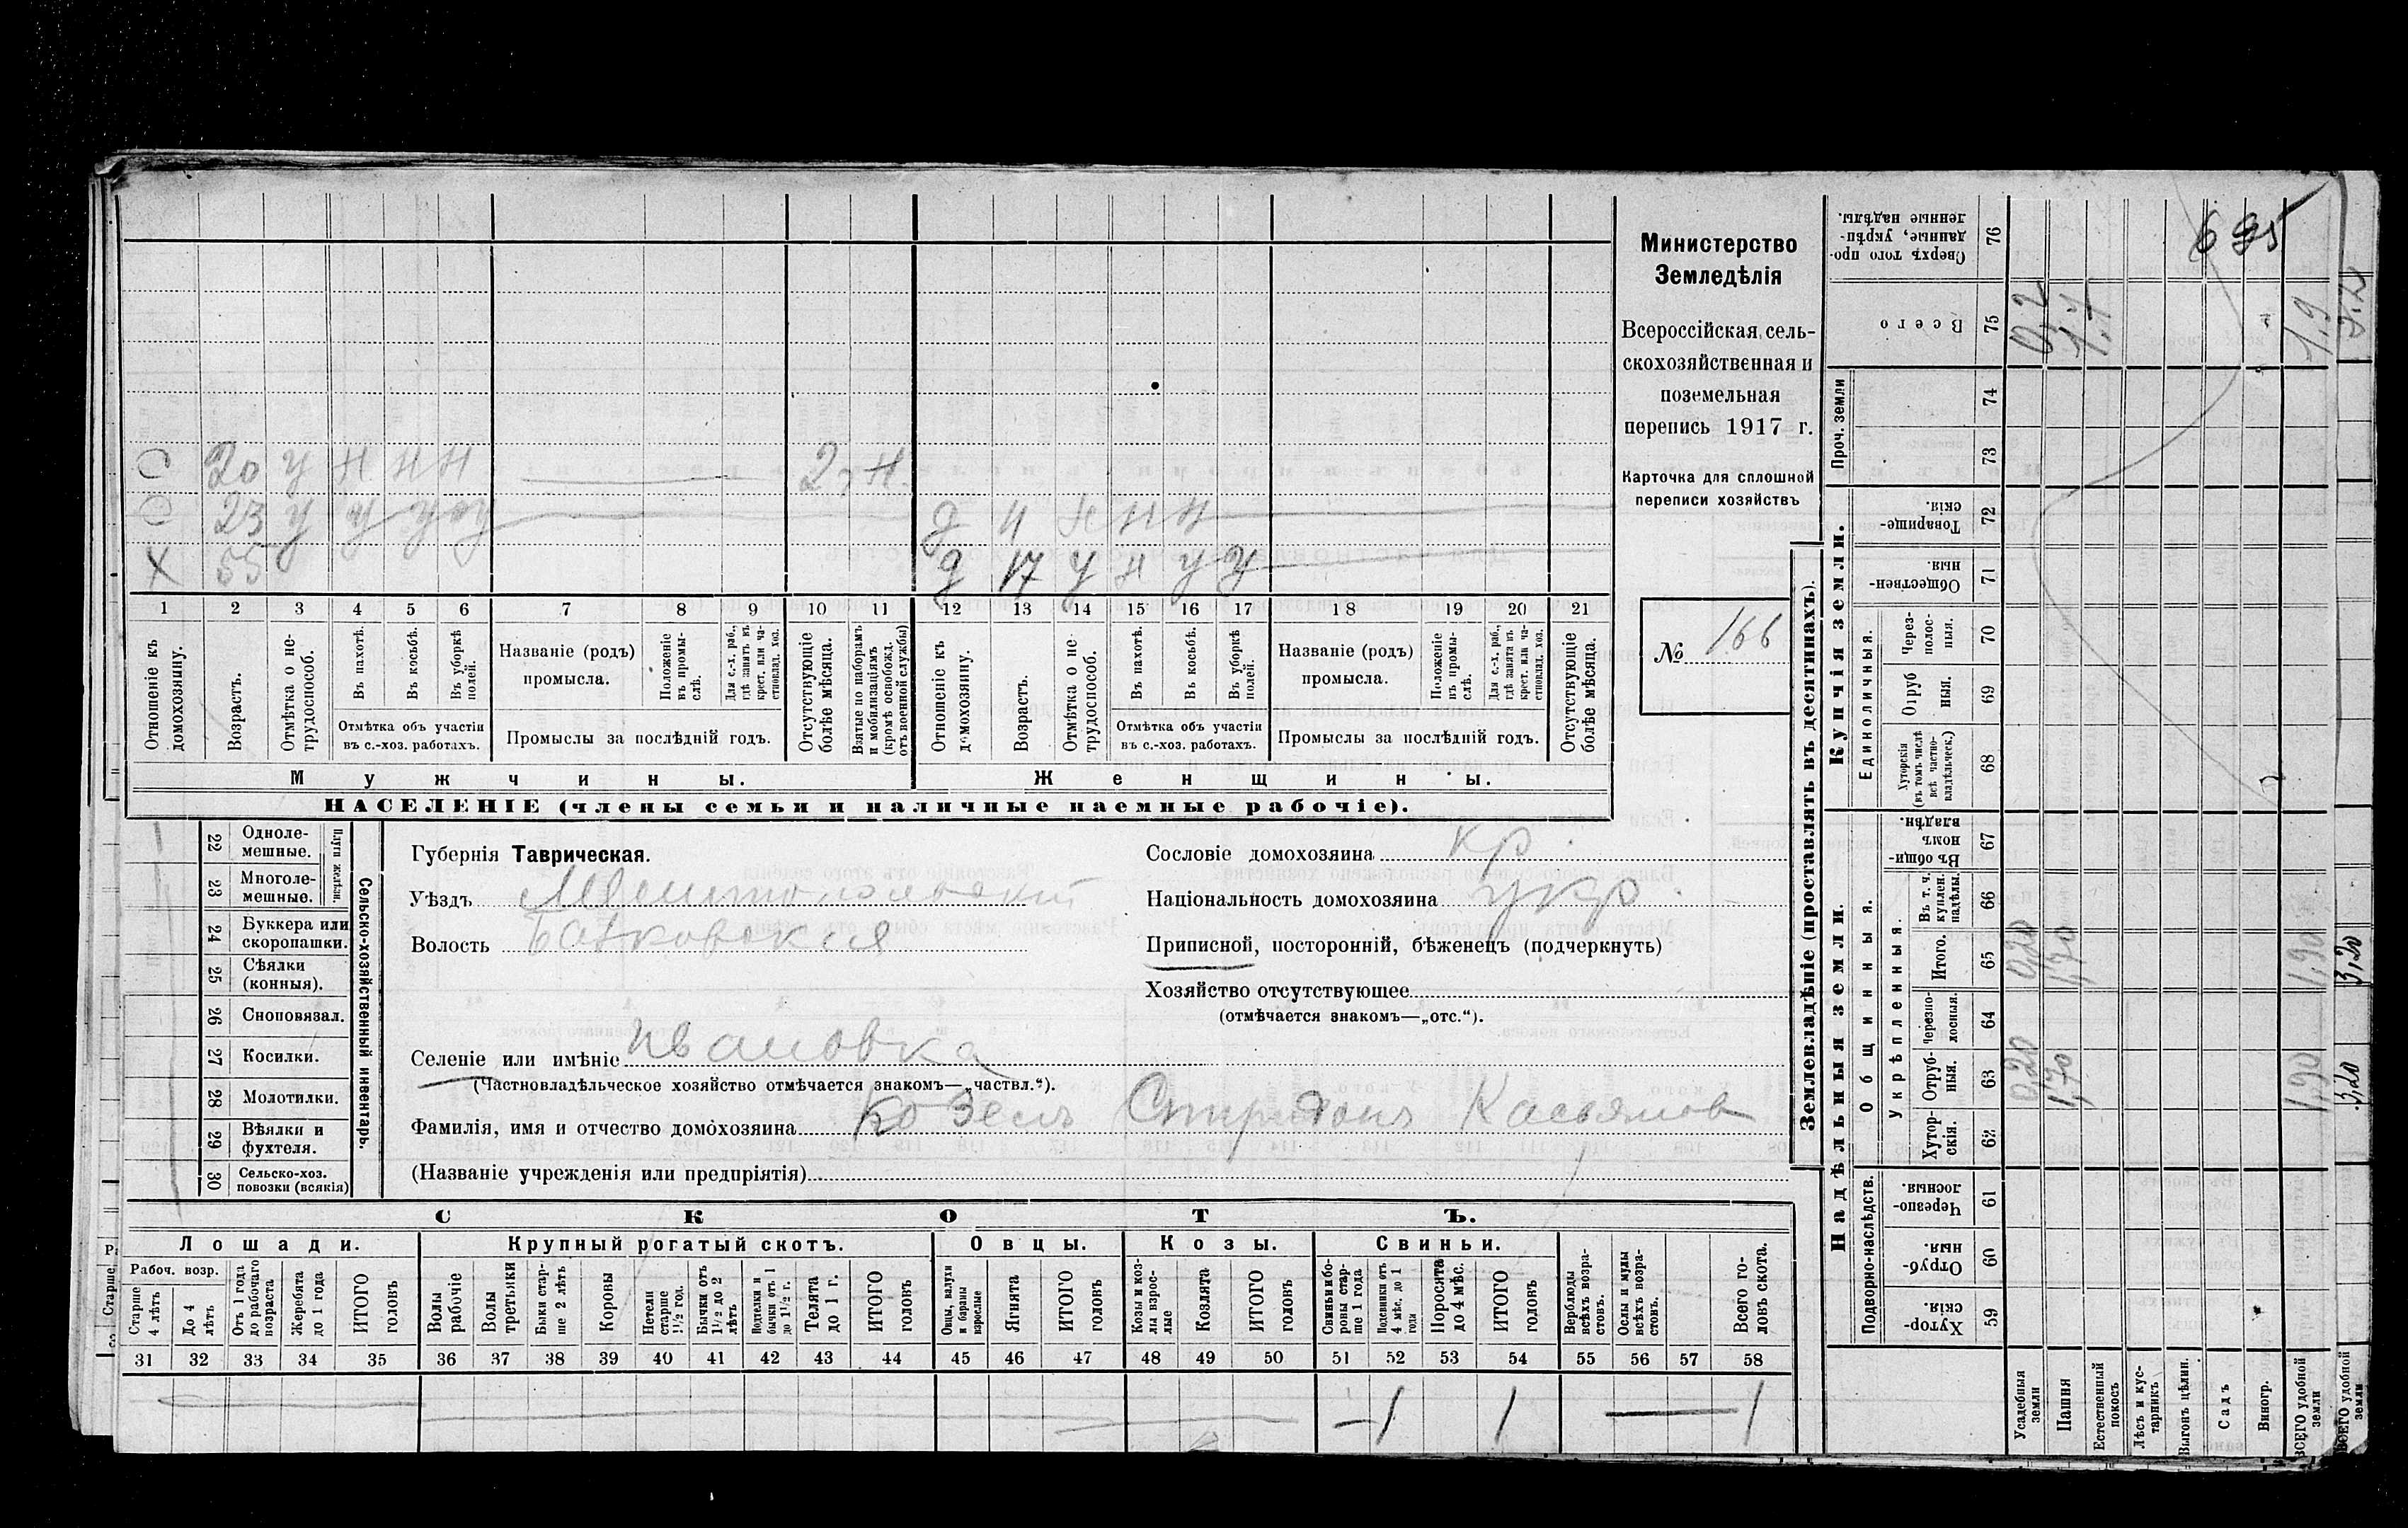 Министерство
Земледѣлія
Всероссійская сель-
скохозяйственная и
поземельная
перепись 1917 г.
Карточка для сплошной
переписи хозяйствъ
№ 166
О 20 У Н Н Н 2 г Н.
О 23 У У У У д 11 Н Н Н
Х 55 д 17 У Н У У
1 2 3 4 5 6 7 8 9 10 11 12 13 14 15 16 17 18 19 20 21
Отношеніе къ домохозяину.
Возрастъ.
Отмѣтка о не-трудоспособ.
Въ пахотѣ.
Въ косьбѣ.
Въ уборкѣ полей.
Отмѣтка объ участіи
въ с.-хоз. работахъ.
Названіе (родъ)
промысла.
Положеніе въ промыслѣ.
Для с.-х. раб., гдѣ занятъ въ крест. или частновлад. хоз.
Промыслы за послѣдній годъ.
Отсутствующіе болѣе мѣсяца.
Взятые по наборамъ и мобилизаціямъ (кромѣ освобожд. отъ военной службы)
Отношеніе къ домохозяину.
Возрастъ.
Отмѣтка о не-трудоспособ.
Въ пахотѣ.
Въ косьбѣ.
Въ уборкѣ полей.
Отмѣтка объ участіи
въ с.-хоз. работахъ.
Названіе (родъ)
промысла.
Положеніе въ промыслѣ.
Для с.-х. раб., гдѣ занята въ крест. или частновлад. хоз.
Промыслы за послѣдній годъ.
Отсутствующіе болѣе мѣсяца.
Мужчины.
Женщины.
НАСЕЛЕНІЕ (члены семьи и наличные наемные рабочіе).
Сельско-хозяйственный инвентарь.
Плуги желѣзн.
22 Одноле-
мешные.
23 Многоле-
мешные.
24 Буккера или
скоропашки.
25 Сѣялки
(конныя).
26 Сноповязал.
27 Косилки.
28 Молотилки.
29 Вѣялки и
фухтеля.
30 Сельско-хоз.
повозки (всякія)
Губернія Таврическая.
Уѣздъ Мелитопольскій
Волость
Сословіе домохозяина кр.
Національность домохозяина укр.
Приписной, посторонній, бѣженецъ (подчеркнуть)
Хозяйство отсутствующее
(отмѣчается знакомъ—„отс.“).
Селеніе или имѣніе Ивановка
(Частновладѣльческое хозяйство отмѣчается знакомъ—„частвл.“).
Фамилія, имя и отчество домохозяина Козелъ Спиридонъ Касьянов
(Названіе учрежденія или предпріятія)
СКОТЪ.
Лошади. Крупный рогатый скотъ. Овцы. Козы. Свиньи.
Рабоч. возр.
Старше 4 лѣтъ
До 4 лѣтъ
Отъ 1 года до рабочаго возраста
Жеребята до 1 года
ИТОГО головъ
Волы рабочіе
Волы третьяки
Быки старше 2 лѣтъ
Коровы
Нетели старше 1½ год.
Бычки отъ 1½ до 2 лѣтъ
Подтелки и бычки отъ 1 до 1½ г.
Телята до 1 г.
ИТОГО головъ
Овцы, валухи и бараны взрослые
Ягнята
ИТОГО головъ
Козы и козлы взрослые
Козлята
ИТОГО головъ
Свиньи и боровы старше 1 года
Подсвинки отъ 4 мѣс. до 1 года
Поросята до 4 мѣс.
ИТОГО головъ
Верблюды всѣхъ возрастовъ.
Ослы и мулы всѣхъ возрастовъ.
Всего головъ скота.
31 32 33 34 35 36 37 38 39 40 41 42 43 44 45 46 47 48 49 50 51 52 53 54 55 56 57 58
1 1 1
Землевладѣніе (проставлять въ десятинахъ).
Надѣльныя земли.
Купчія земли.
Проч. земли
Подворно-наслѣдств.
Общинныя.
Укрѣпленныя.
Единоличныя.
Сверхъ того проданные, укрѣпленные надѣлы. 76
Всего 75
74
73
Товарищескія. 72
Общественныя. 71
Черезполосныя. 70
Отрубныя. 69
Хуторскія (въ томъ числѣ всѣ частновладѣльческ.) 68
Въ общинномъ владѣн. 67
Въ т. ч. куплен. надѣлы. 66
Итого. 65
Черезполосныя. 64
Отрубныя. 63
Хуторскія. 62
Черезполосныя. 61
Отрубныя. 60
Хуторскія. 59
Усадебныя земли
Пашня
Естественный покосъ
Лѣсъ и кустарникъ
Выгонъ цѣлин.
Садъ
Виногр.
ВСЕГО удобной земли
ВСЕГО удобной земли
0,2
1,7
1,9
0,20
1,70
1,90
3,20
0,20
1,70
1,90
3,20
Старше